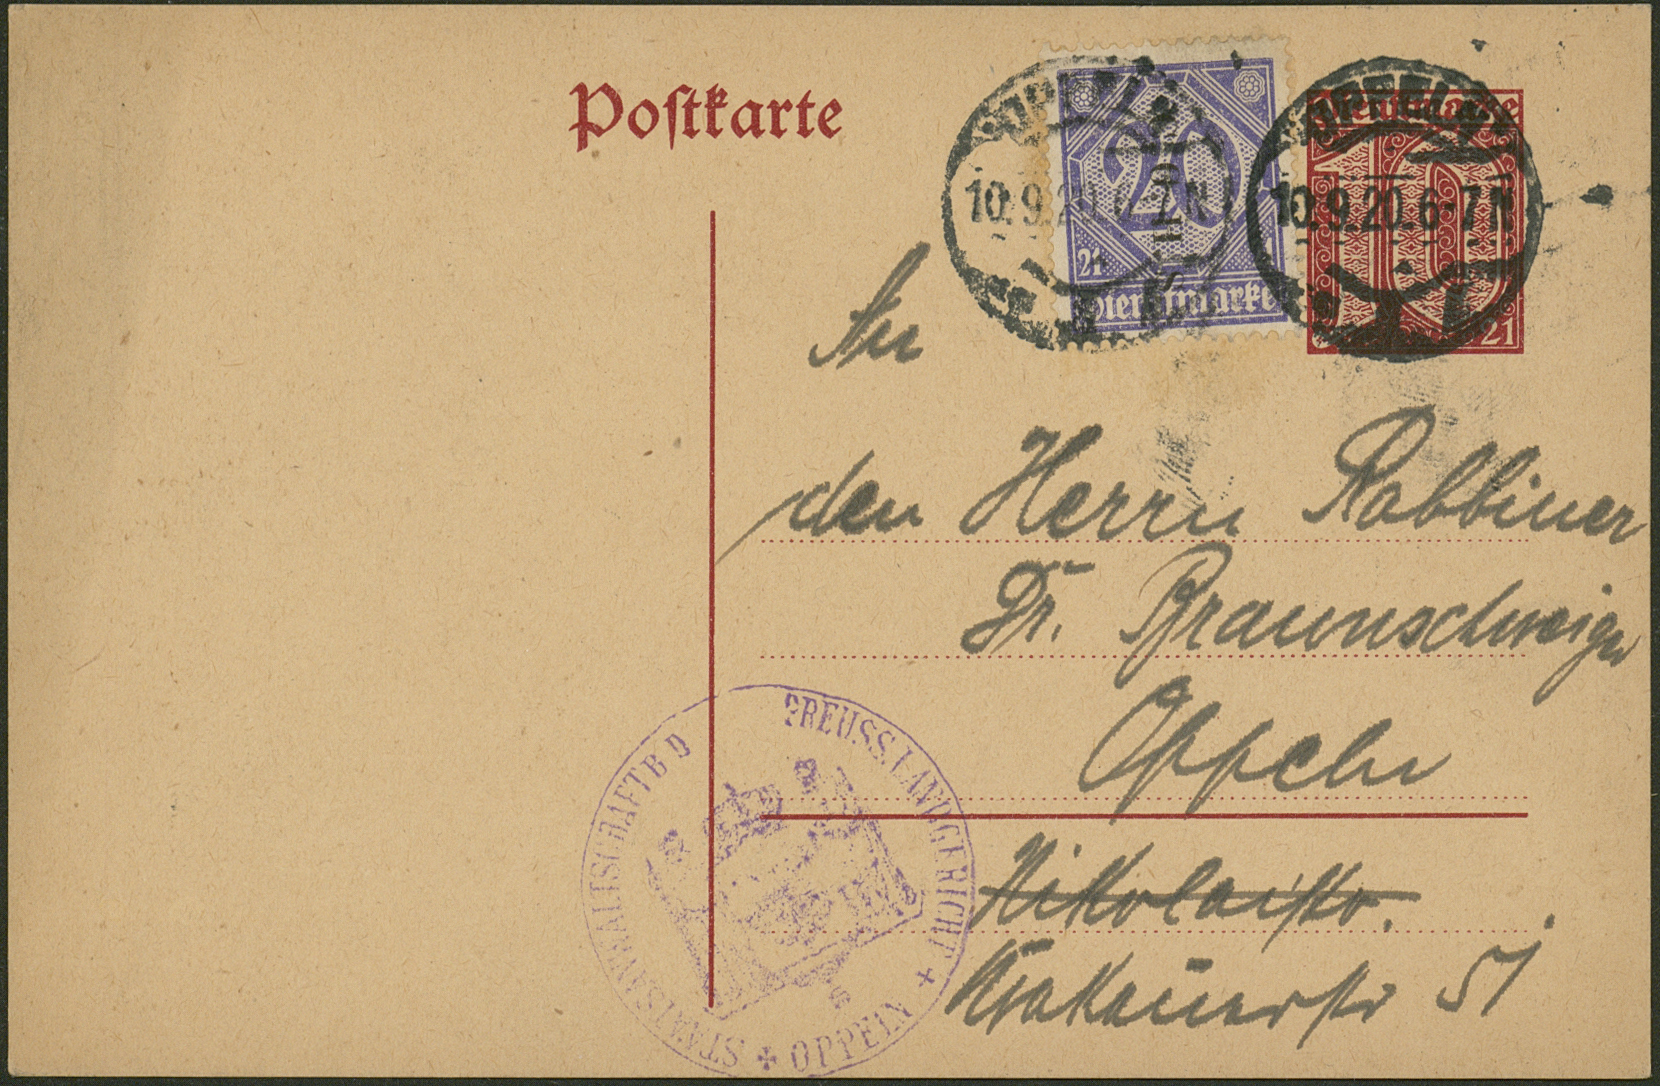 Postkarte
OPPELN
10.9.20. 6-7 N
20
21
Dienstmarke
OPPELN
10.9.20. 6-7 N
Dienstmarke
10
21
An
den Herrn Rabbiner
Dr. Braunschweiger
Oppeln
Nikolaistr.
Krakauerstr 51
STAATSANWALTSCHAFT B D PREUSS. LANDGERICHT + OPPELN